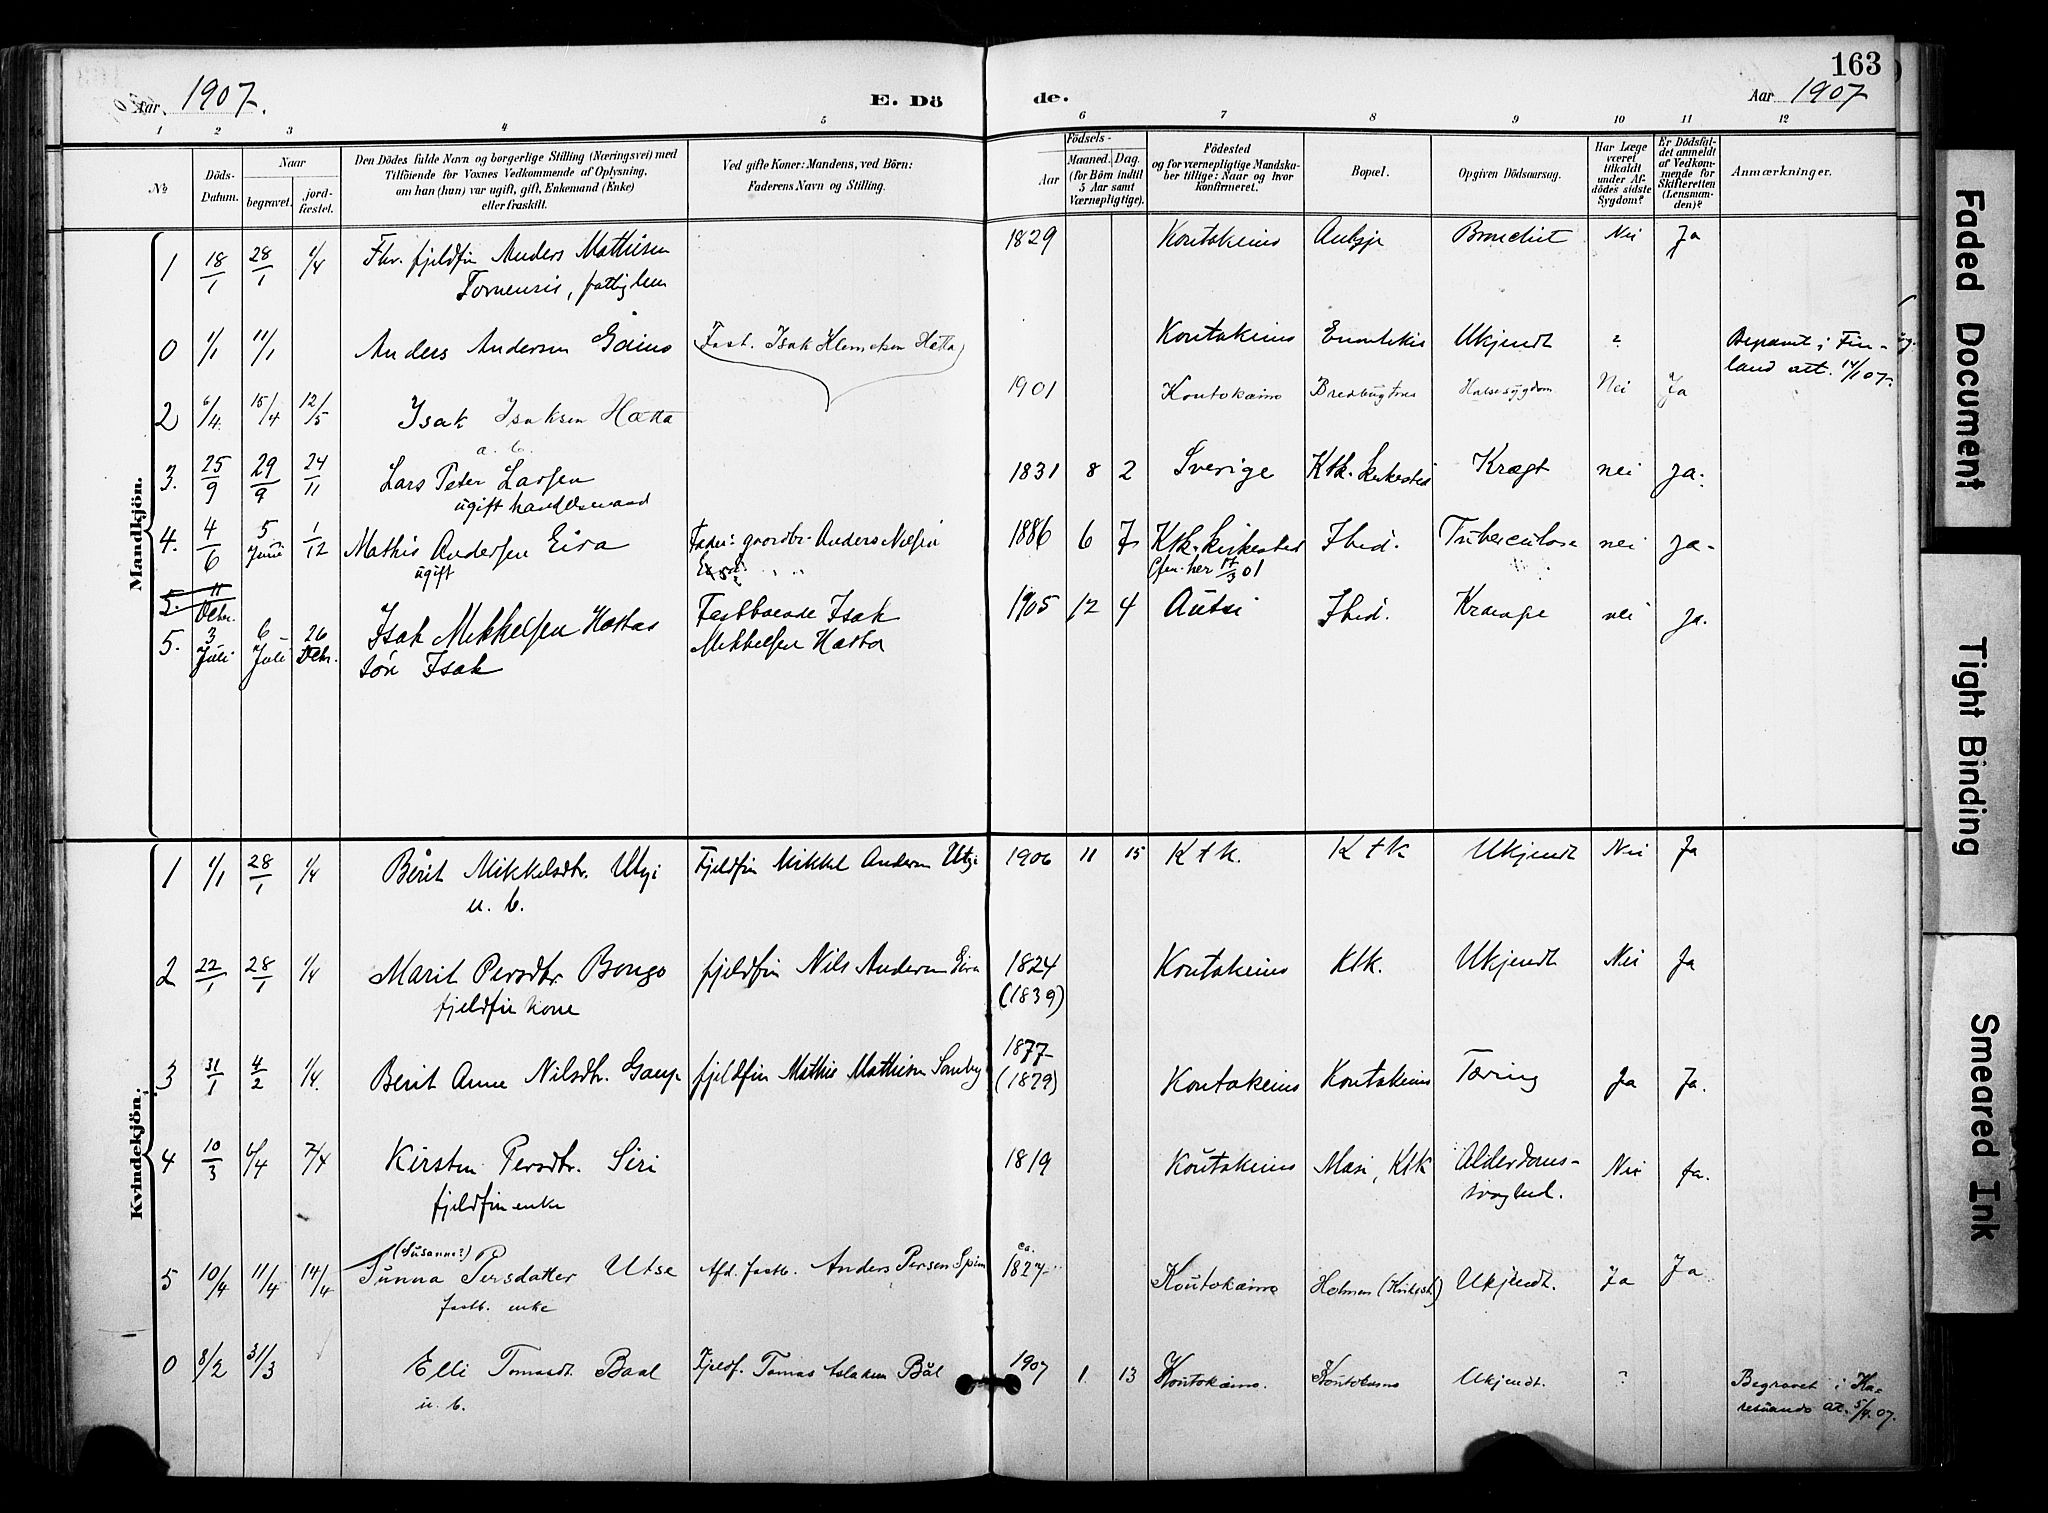 163
Aar 1907. E. Dö de. Aar 1907
1 2 3 4 5 6 7 8 9 10 11 12
No
Döds-Datum.
Naar
begravet.
jord-fæstet.
Den Dödes fulde Navn og borgerlige Stilling (Næringsvei) med
Tilföiende for Voxnes Vedkommende af Oplysning,
om han (hun) var ugift, gift, Enkemand (Enke)
eller fraskilt.
Ved gifte Koner: Mandens, ved Börn:
Faderens Navn og Stilling.
Födsels-
Aar
Maaned. Dag.
(for Börn indtil
5 Aar samt
Værnepligtige).
Födested
og for værnepligtige Mandska-
ber tillige: Naar og hvor
konfirmeret.
Bopæl.
Opgiven Dödsaarsag.
Har Læge
været
tilkaldt
under Af-
dödes sidste
Sygdom?
Er Dödsfal-
det anmeldt
af Vedkom-
mende for
Skifteretten
(Lensman-
den)?
Anmærkninger.
Mandkjön.
1 18/1 28/1 1/4 Fhv. fjeldfin Anders Mathisen 1829 Koutokeino Bronchit Nei Ja
Tornensis, fattiglem
0 1/1 11/1 Anders Andersen Gaino Koutokeino Enontekis Ukjendt ? Begravet i Fin-
land att. 14/1 07.
Fastb. Isak Klemetsen Hætta
2 6/4 15/4 12/5 Isak Isaksen Hætta 1901 Koutokæino Halssygdom Nei Ja
3. 25/9 29/9 24/11 Lars Peter Larsen 1831 8 2 Sverige Ktk. kirkested Kræft nei ja.
ugift handelsmand
4. 4/6 5 Juni 1/12 Mathis Andersen Eira Fader: gaardbr. Anders Nilsen 1886 6 7 Ktk. kirkested Ibid. Tuberculose nei ja.
ugift
5. 11 Dcbr.
5. 3 Juli 6 Juli 26 Dcbr. Isak Mikkelsen Hættas Fastboende Isak 1905 12 4 Autsi Ibid. Krampe nei ja.
sön Isak Mikkelsen Hætta
Kvindekjön.
1 1/1 28/1 1/4 Berit Mikkelsdtr. Utsi Fjeldfin Mikkel Andersen Utsi 1906 11 15 Ktk. Ktk Ukjendt Nei Ja
u. b.
2 22/1 28/1 1/4 Marit Persdtr. Bongo fjeldfin Nils Andersen Eira 1824 Koutokeino Ktk. Ukjendt Nei Ja
fjeldfin kone (1839)
3 31/1 4/2 1/4. Berit Anne Nilsdtr. Gaup fjeldfin Mathis Mathisen Somby 1877 (1879) Koutokeino Koutokeino Tæring Ja Ja.
4 10/3 6/4 7/4 Kirsten Persdtr. Siri 1819 Koutokeino Masi, Ktk Alderdoms- Nei Ja.
fjeldfin enke svaghed.
(Susanne?)
5 10/4 11/4 14/4 Sunna Persdatter Utse Afd. fastb. Anders Persen Spein ca. 1827 Koutokæino Holmen (Kirkest.) Ukjendt. Ja Ja
fastb. enke
0 8/2 31/3 Elli Tomasdt. Baal Fjeldf. Tomas Aslaksen Bål 1907 1 13 Koutokæino. Koutokæino Ukjendt. ? Begravet i Ka-
u. b. resuando att. 5/4 07.
Faded Document
Tight Binding
Smeared Ink